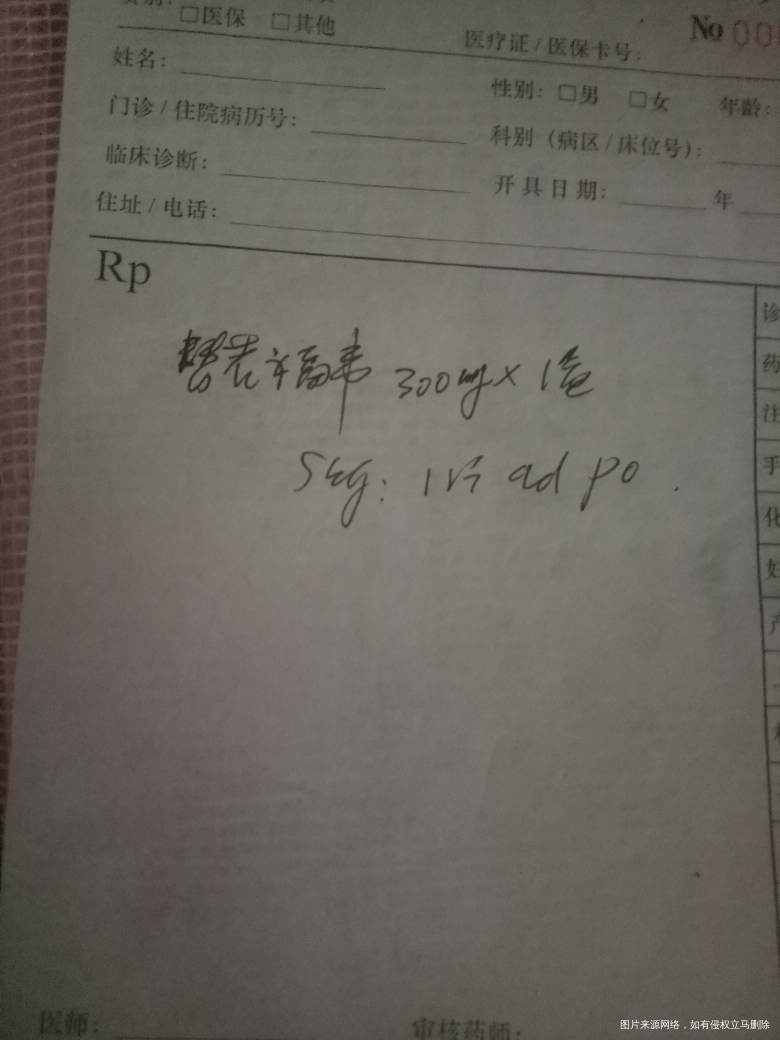 □医保 □其他
医疗证/医保卡号:
No 00
姓名:
性别: □男 □女 年龄:
门诊/住院病历号:
科别(病区/床位号):
临床诊断:
开具日期: 年
住址/电话:
Rp
替诺福韦 300mg× 1盒
Sig: 1片 qd po.
诊
药
注
手
化
产
医师:
审核药师:
图片来源网络，如有侵权立马删除